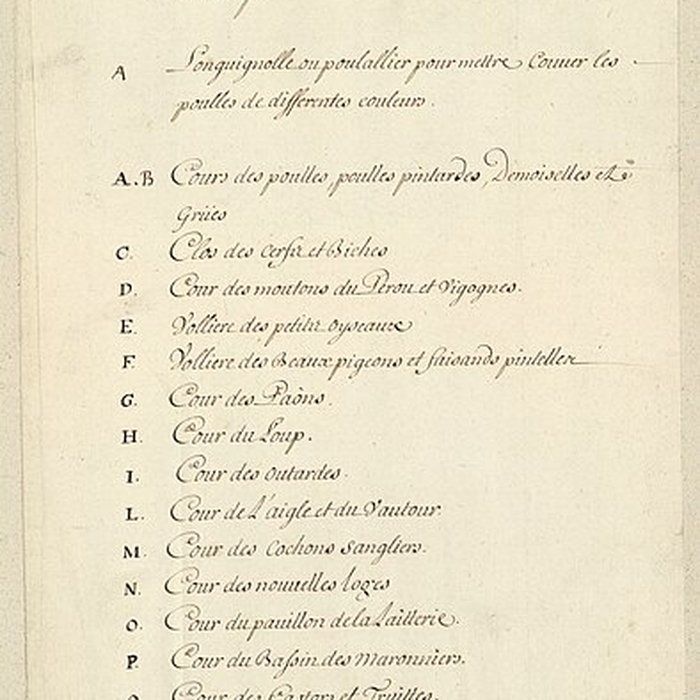 A Longuignolle ou poulallier pour mettre Couuer les
poulles de differentes couleurs.
A.B Cours des poulles, poulles pintardes, Demoiselles et
Grües
C. Clos des Cerfs et Biches
D. Cour des moutons du Perou et Vigognes.
E. Volliere des petits oyseaux
F. Volliere des Beaux pigeons et faisands pintellez
G. Cour des Paôns.
H. Cour du Loup.
I. Cour des outardes.
L. Cour de L'aigle et du Vautour.
M. Cour des Cochons Sangliers.
N. Cour des nouuelles loges
O. Cour du pauillon de la Laitterie.
P. Cour du Bassin des Maronniers.
Cour des Castors et Truittes.